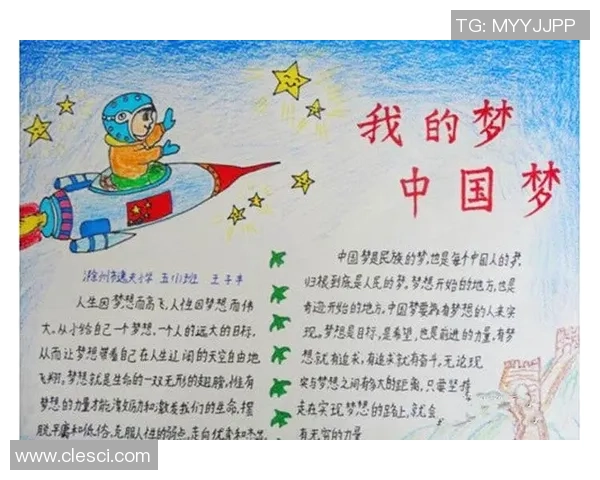 TG: MYYJJPP
我的梦
中国梦
滁州市逸夫小学 五(1)班 王子丰
人生因梦想而高飞,人性因梦想而伟
大。从小给自己一个梦想,一个人的远大的目标,
从而让梦想带着自己在人生辽阔的天空自由地
飞翔。梦想就是生命的一双无形的翅膀,惟有
梦想的力量才能激励和激发我们的生命,摆
脱平庸和低俗,克服人性的弱点,走向优秀和杰出
中国梦是民族的梦,也是每个中国人的梦
归根到底是人民的梦,梦想开始的地方,也是
奇迹开始的地方,中国梦要有梦想的人来实
现。梦想是目标,是希望,也是前进的力量,有梦
想就有追求,有追求就有奋斗,无论现
实与梦想之间有多大的距离,只要坚持
走在实现梦想的路上,就会
有无穷的力量
www.clesci.com